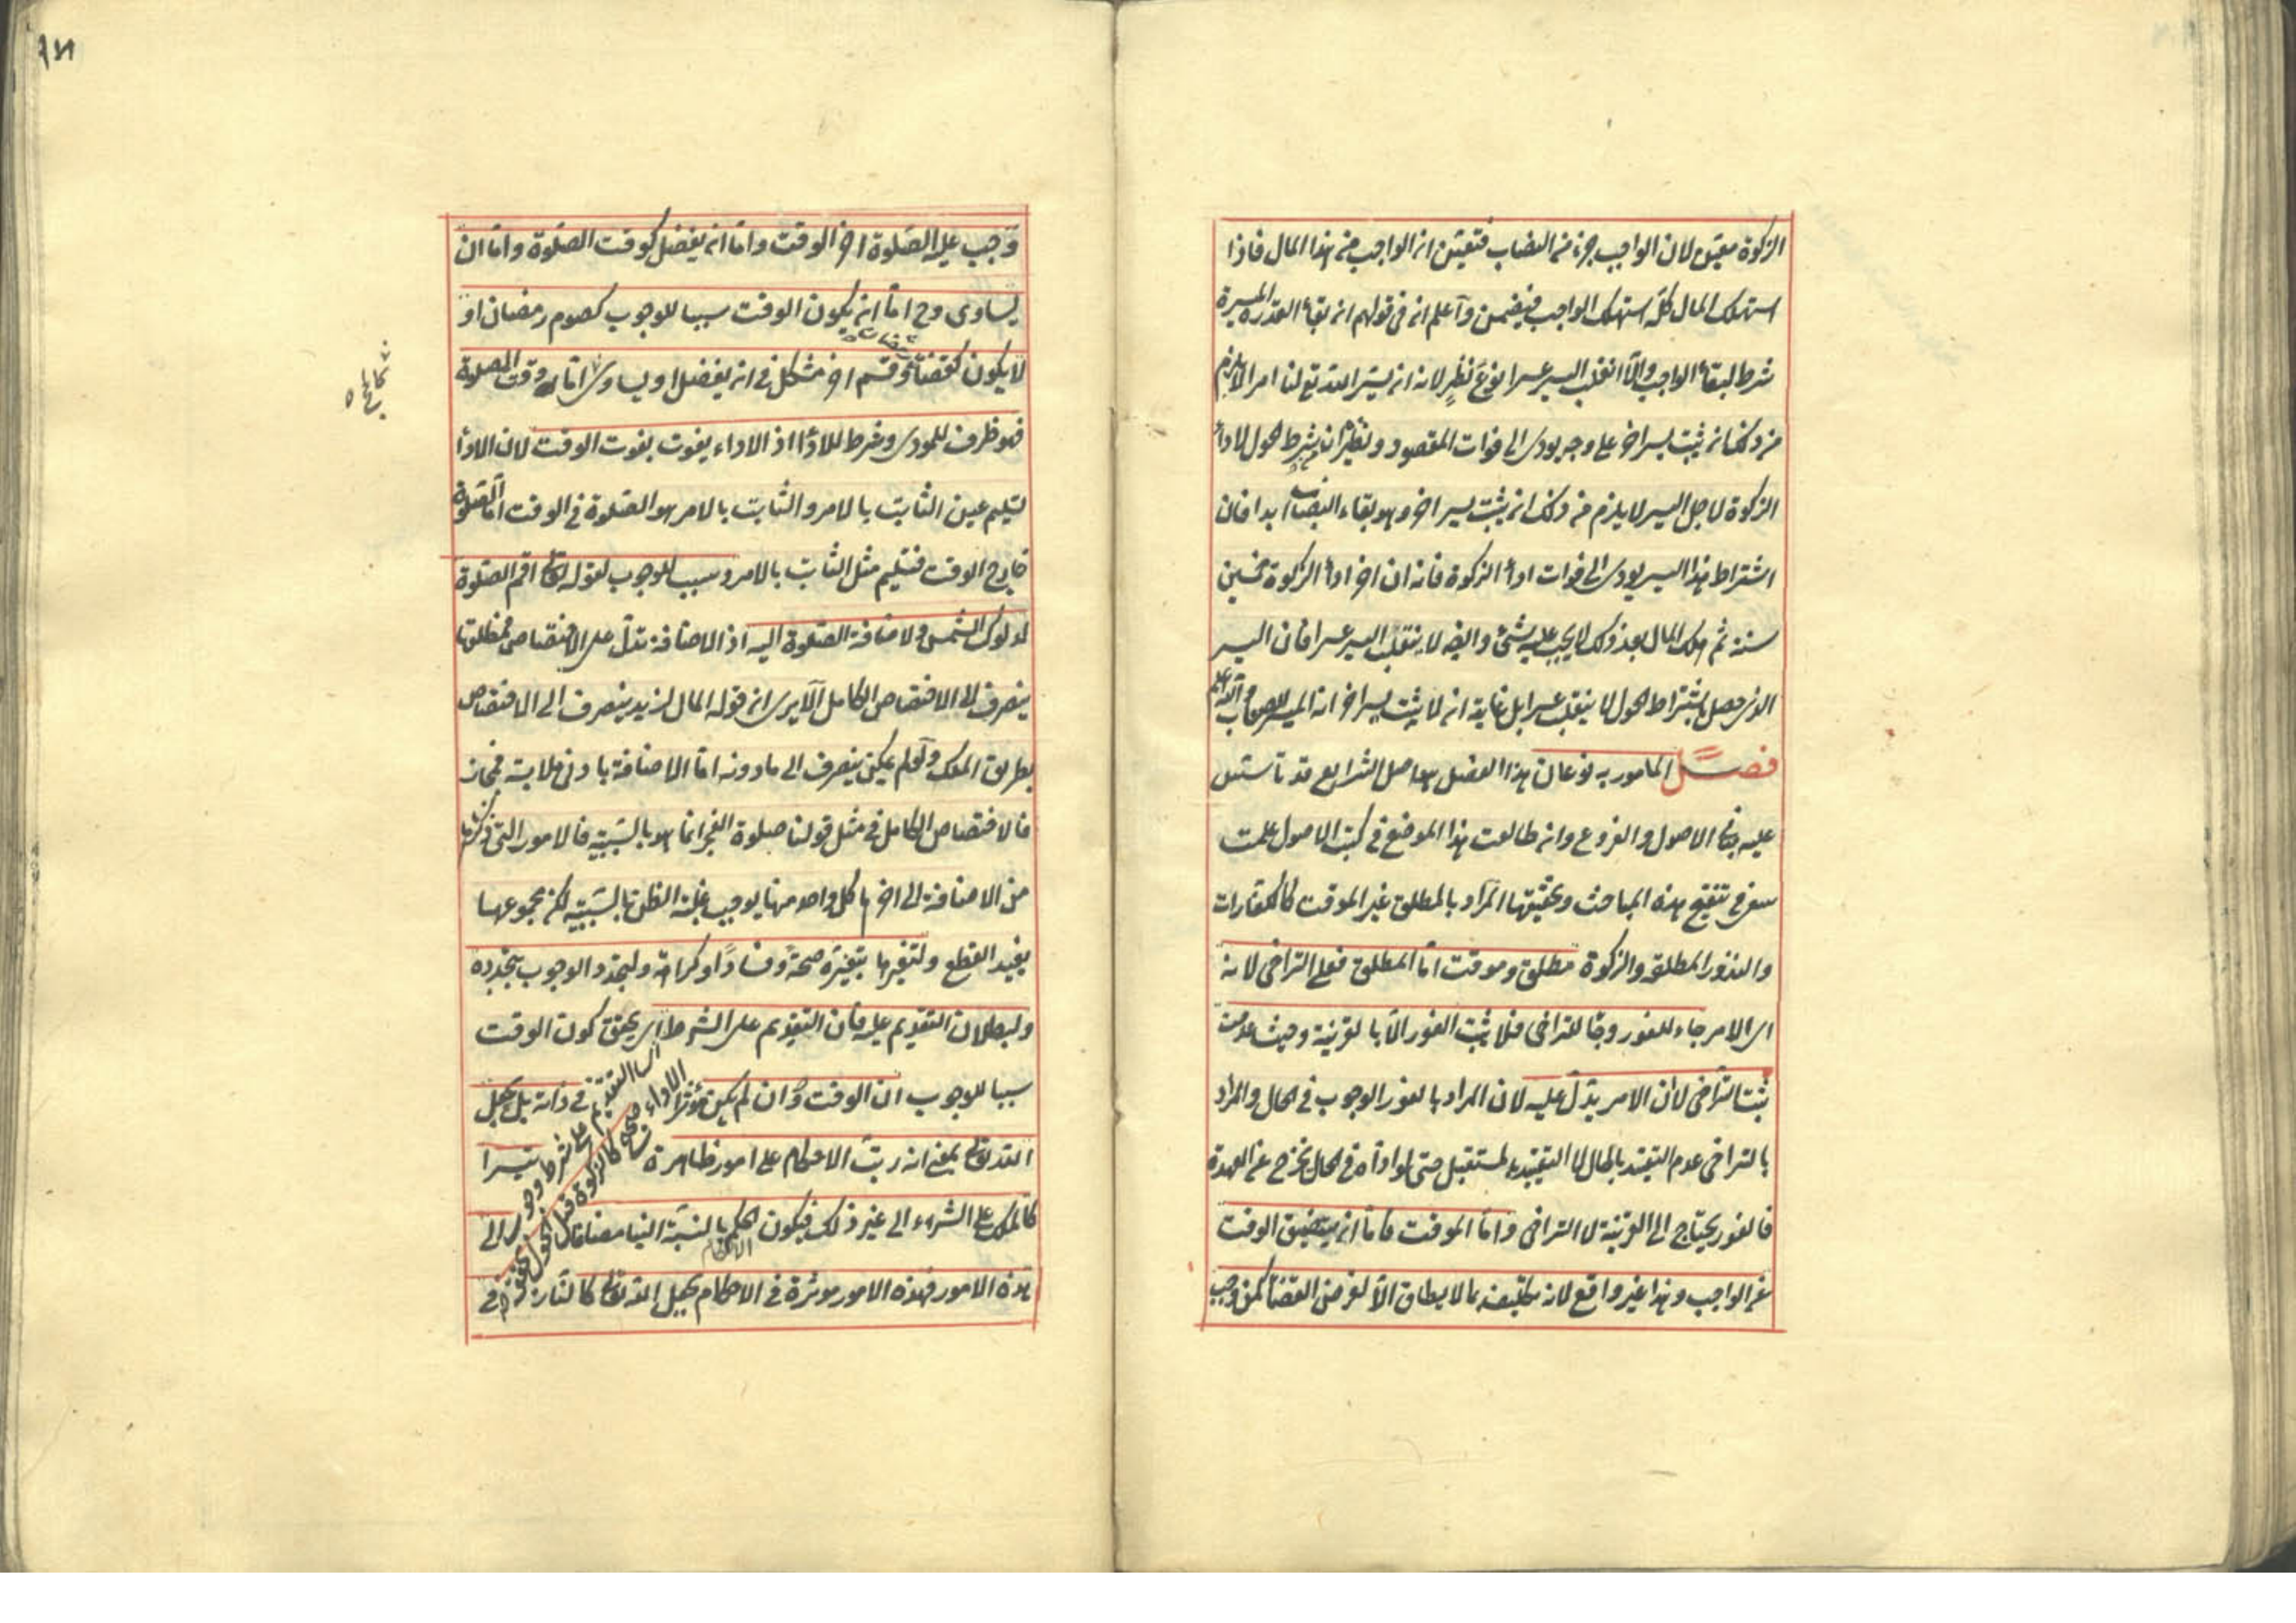 الزكوة معين لان الواجب جزء من النصاب فتعين ان الواجب من هذا المال فاذا
استهلك المال كله استهلك الواجب فيضمن واعلم ان في قولهم ان بقاء القدرة الميسرة
شرط لبقاء الواجب والا انقلب اليسر عسرا نوع نظر لانه ان يسر الله تع لنا امرا لا يلزم
من ذلك انه يثبت يسر اخر على وجه يودى الى فوات المقصود ونظيره ان شرط الحول لاداء
الزكوة لاجل اليسر لا يلزم من ذلك ان يثبت يسر اخر وهو بقاء النصاب ابدا فان
اشتراط هذا اليسر يودى الى فوات اداء الزكوة فانه ان اخر اداء الزكوة خمسين
سنة ثم هلك المال بعد ذلك لا يجب عليه شئ وايضا لا ينقلب اليسر عسرا فان اليسر
الذى حصل باشتراط الحول لا ينقلب عسرا بل غايته انه لا يثبت يسر اخر انه الميسر للصواب
فصل المامور به نوعان هذا الفصل هو اصل الشرايع قد تاسس
عليه مبانى الاصول والفروع وان طالعت هذا الموضع في كتب الاصول علمت
سعى في تنقيح هذه المباحث وتحقيقها المراد بالمطلق غير الموقت كالكفارات
والنذور المطلقة والزكوة مطلق وموقت اما المطلق فعلى التراخى لانه
اى الامر جاء للفور وجا للتراخى فلا يثبت الفور الا بالقرينة وحيث عدمت
يثبت التراخى لا ان الامر يدل عليه لان المراد بالفور الوجوب في الحال والمراد
بالتراخى عدم التقييد بالحال لا التقييد بالمستقبل حتى لو اداه في الحال يخرج عن العهدة
فالفور يحتاج الى القرينة لا التراخى واما الموقت فاما ان يتضيق الوقت
عن الواجب وهذا غير واقع لانه تكليف بما لا يطاق الا لغرض القضا كمن وجب
وجب عليه الصلوة اخر الوقت واما ان يفضل كوقت الصلوة واما ان
يساوى وح اما ان يكون الوقت سببا للوجوب كصوم رمضان او
لا يكون كقضاء رمضان وقسم اخر مشكل في انه يفضل او يساوى كالحج اما وقت الصلوة
فهو ظرف للمودى وشرط للاداء اذ الاداء يفوت بفوت الوقت لان الاداء
تسليم عين الثابت بالامر والثابت بالامر هو الصلوة في الوقت اما الصلوة
خارج الوقت فتسليم مثل الثابت بالامر وسبب للوجوب لقوله تعالى اقم الصلوة
لدلوك الشمس ولاضافة الصلوة اليه اذ الاضافة تدل على الاختصاص فمطلقها
ينصرف الى الاختصاص الكامل الا يرى ان قوله المال لزيد ينصرف الى الاختصاص
بطريق الملك ولو لم يمكن ينصرف الى ما دونه اما الاضافة بادنى ملابسة فمجاز
فالاختصاص الكامل في مثل قولنا صلوة الفجر انما هو بالسببية فالامور التى ذكرها
من الاضافة الى اخرها كل واحد منها يوجب غلبة الظن بالسببية لكن مجموعها
يفيد القطع ولتغيرها بتغيره صحة وفسادا وكراهة ولتجدد الوجوب بتجدده
ولبطلان التقديم عليه فان التقديم على الشرط اى يحقق كون الوقت
سببا للوجوب ان الوقت وان لم يكن مؤثرا في ذاته بل بجعل
الله تعالى بمعنى انه رتب الاحكام على امور ظاهرة تيسرا
كالملك على الشراء الى غير ذلك فيكون الحكم بالنسبة الينا مضافا الى
هذه الامور فهذه الامور موثرة في الاحكام بجعل الله تعالى كالنار في